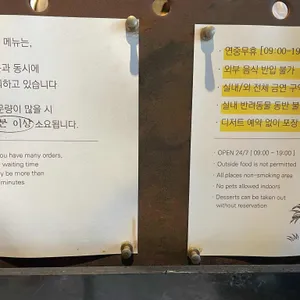 메뉴는,
동시에
하고 있습니다
많을 시
이상 소요됩니다.
you have many orders,
waiting time
be more than
minutes
· 연중무휴 [09:00-19
· 외부 음식 반입 불가
· 실내/외 전체 금연 구
· 실내 반려동물 동반 불
· 디저트 예약 없이 포장
· OPEN 24/7 [ 09:00 - 19:00 ]
· Outside food is not permitted
· All places non-smoking area
· No pets allowed indoors
· Desserts can be taken out
without reservation